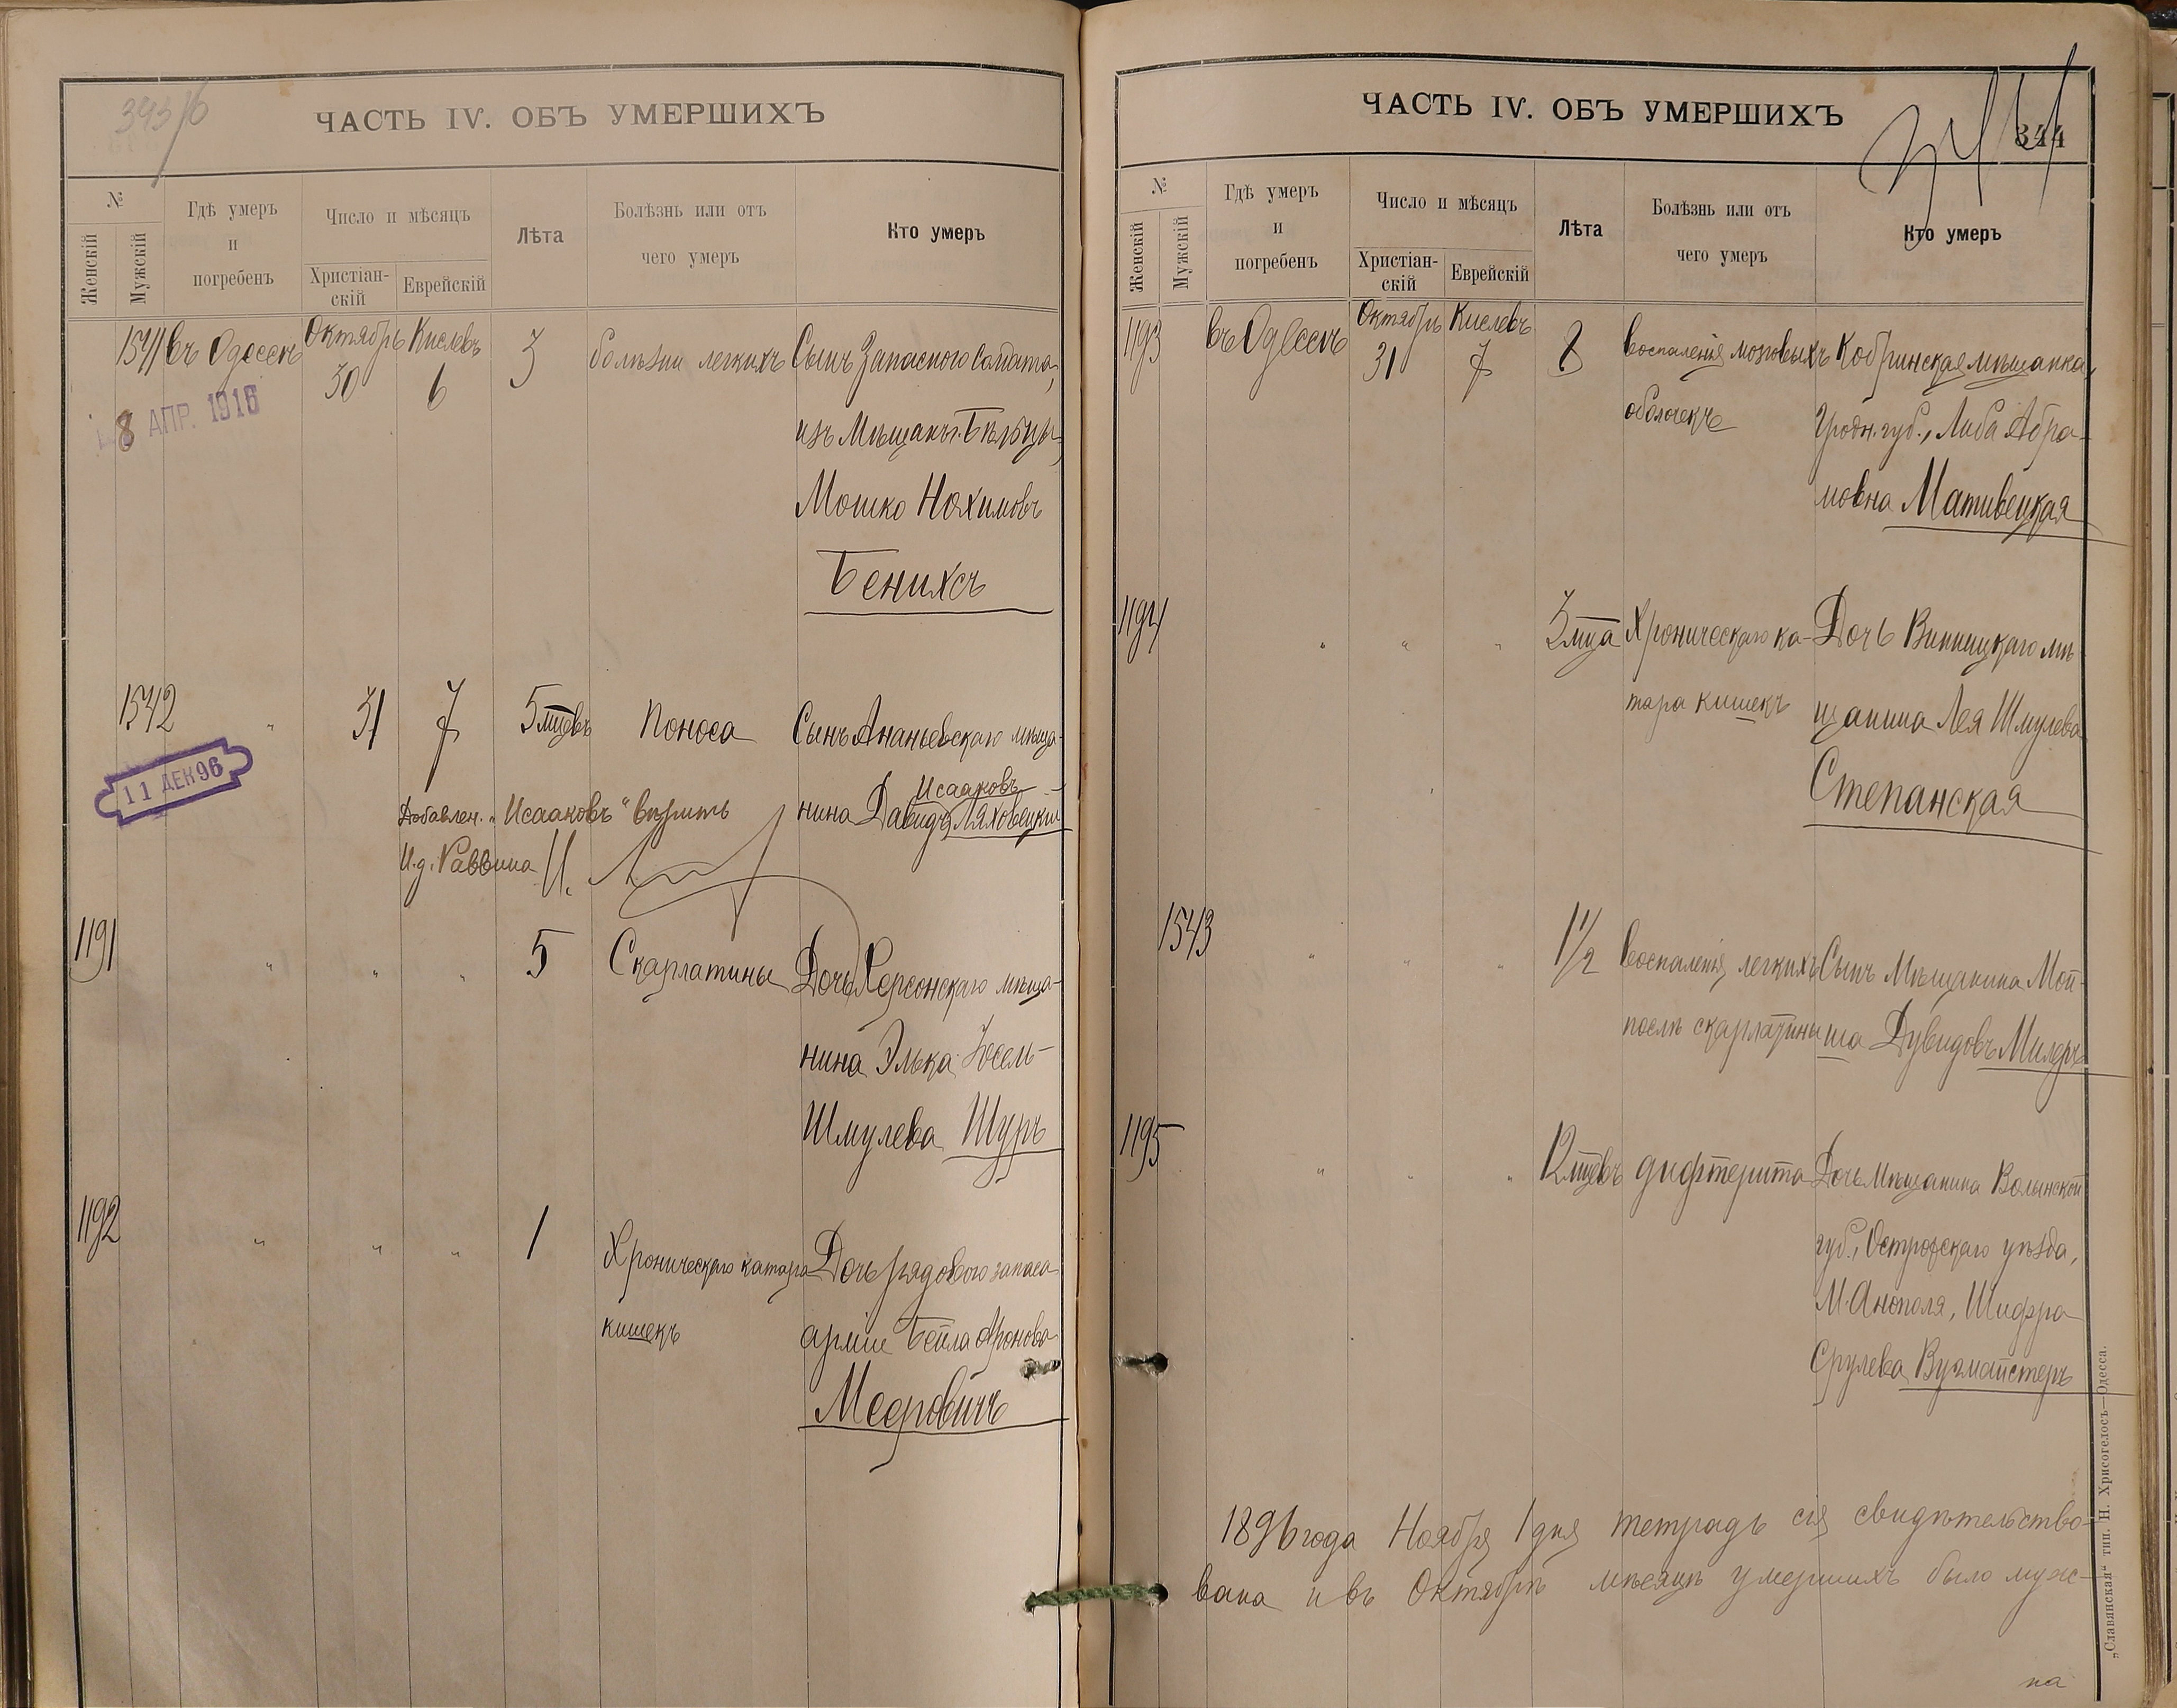 343/б
ЧАСТЬ IV. ОБЪ УМЕРШИХЪ
№
Женскій
Мужскій
Гдѣ умеръ
и
погребенъ
Число и мѣсяцъ
Христіан-
скій
Еврейскій
Лѣта
Болѣзнь или отъ
чего умеръ
Кто умеръ
1541 въ Одессѣ Октябрь 30 Кислевъ 6 3 болѣзни легкихъ Сынъ Запаснаго солдата,
8 АПР. 1916
изъ Мѣщанъ г. Бѣльцы,
Мошко Нохимовъ
Бенихсъ
1542 " 31 7 5 мцевъ Поноса Сынъ Ананьевскаго мѣща-
11 ДЕК 96
Исааковъ
нина Давидъ Ляховецкій
Добавлен. "Исааковъ" вѣрить
И. д. Раввина
1191 " " " 5 Скарлатины Дочь Херсонскаго мѣща-
нина Элька Іосель-
Шмулева Шуръ
1192 " " " 1 Хроническаго катара Дочь рядового запаса
кишекъ арміи Бейла Аронова
Мееровичъ
ЧАСТЬ IV. ОБЪ УМЕРШИХЪ
344
344
№
Женскій
Мужскій
Гдѣ умеръ
и
погребенъ
Число и мѣсяцъ
Христіан-
скій
Еврейскій
Лѣта
Болѣзнь или отъ
чего умеръ
Кто умеръ
1193 въ Одессѣ Октябрь 31 Кислевъ 7 8 воспаленія мозговыхъ Кобринская мѣщанка,
оболочекъ Гродн. губ., Либа Абра-
мовна Мативецкая
1194 " " " 3 мца Хроническаго ка- Дочь Винницкаго мѣ
тара кишекъ щанина Лея Шмулева
Степанская
1543 " " " 1 1/2 воспаленія легкихъ Сынъ Мѣщанина Мой-
послѣ скарлатины ша Дувидовъ Милеръ
1195 " " " 12 мцевъ дифтерита Дочь Мѣщанина Волынской
губ., Острогскаго уѣзда,
М. Анополя, Шифра
Срулева Вугмайстеръ
1896 года Ноября 1 дня тетрадь сія свидѣтельство-
вана и въ Октябрѣ мѣсяцѣ умершихъ было муж-
на
„Славянская" тип. Н. Хрисогелосъ—Одесса.